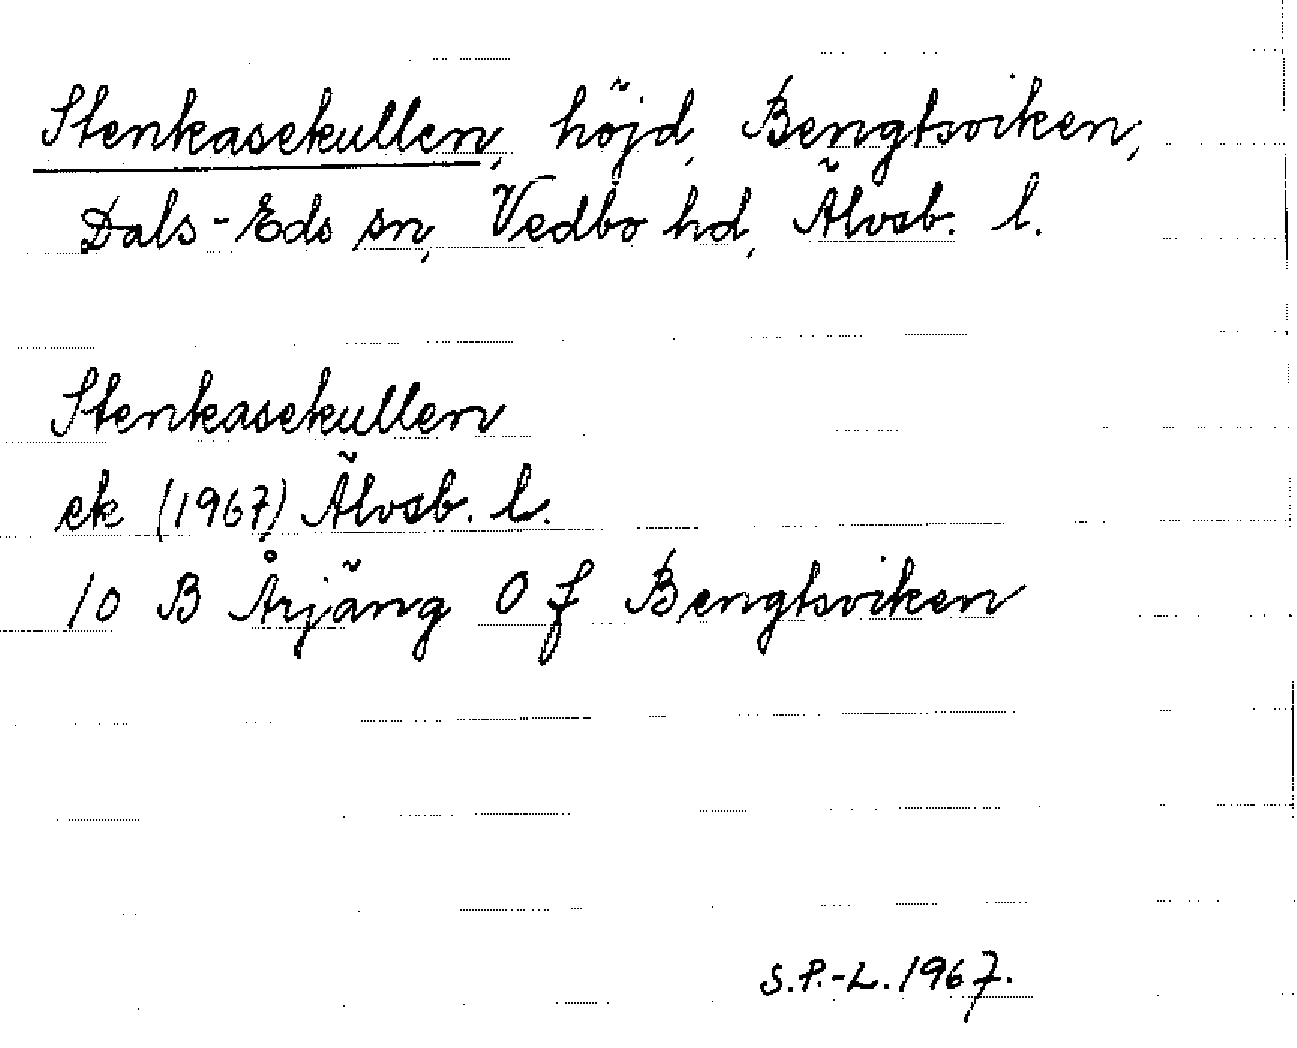 Stenkasekullen, höjd, Bengtsviken,
Dals-Eds sn, Vedbo hd, Älvsb. l.
Stenkasekullen
ek (1967) Älvsb. l.
10 B Årjäng O f Bengtsviken
S.P.-L. 1967.